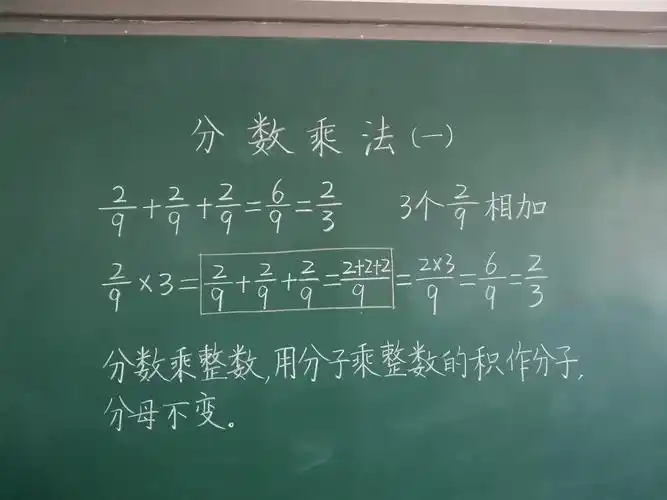 分数乘法(一)
2/9+2/9+2/9=6/9=2/3 3个2/9相加
2/9×3=2/9+2/9+2/9=2+2+2/9=2×3/9=6/9=2/3
分数乘整数,用分子乘整数的积作分子,
分母不变。